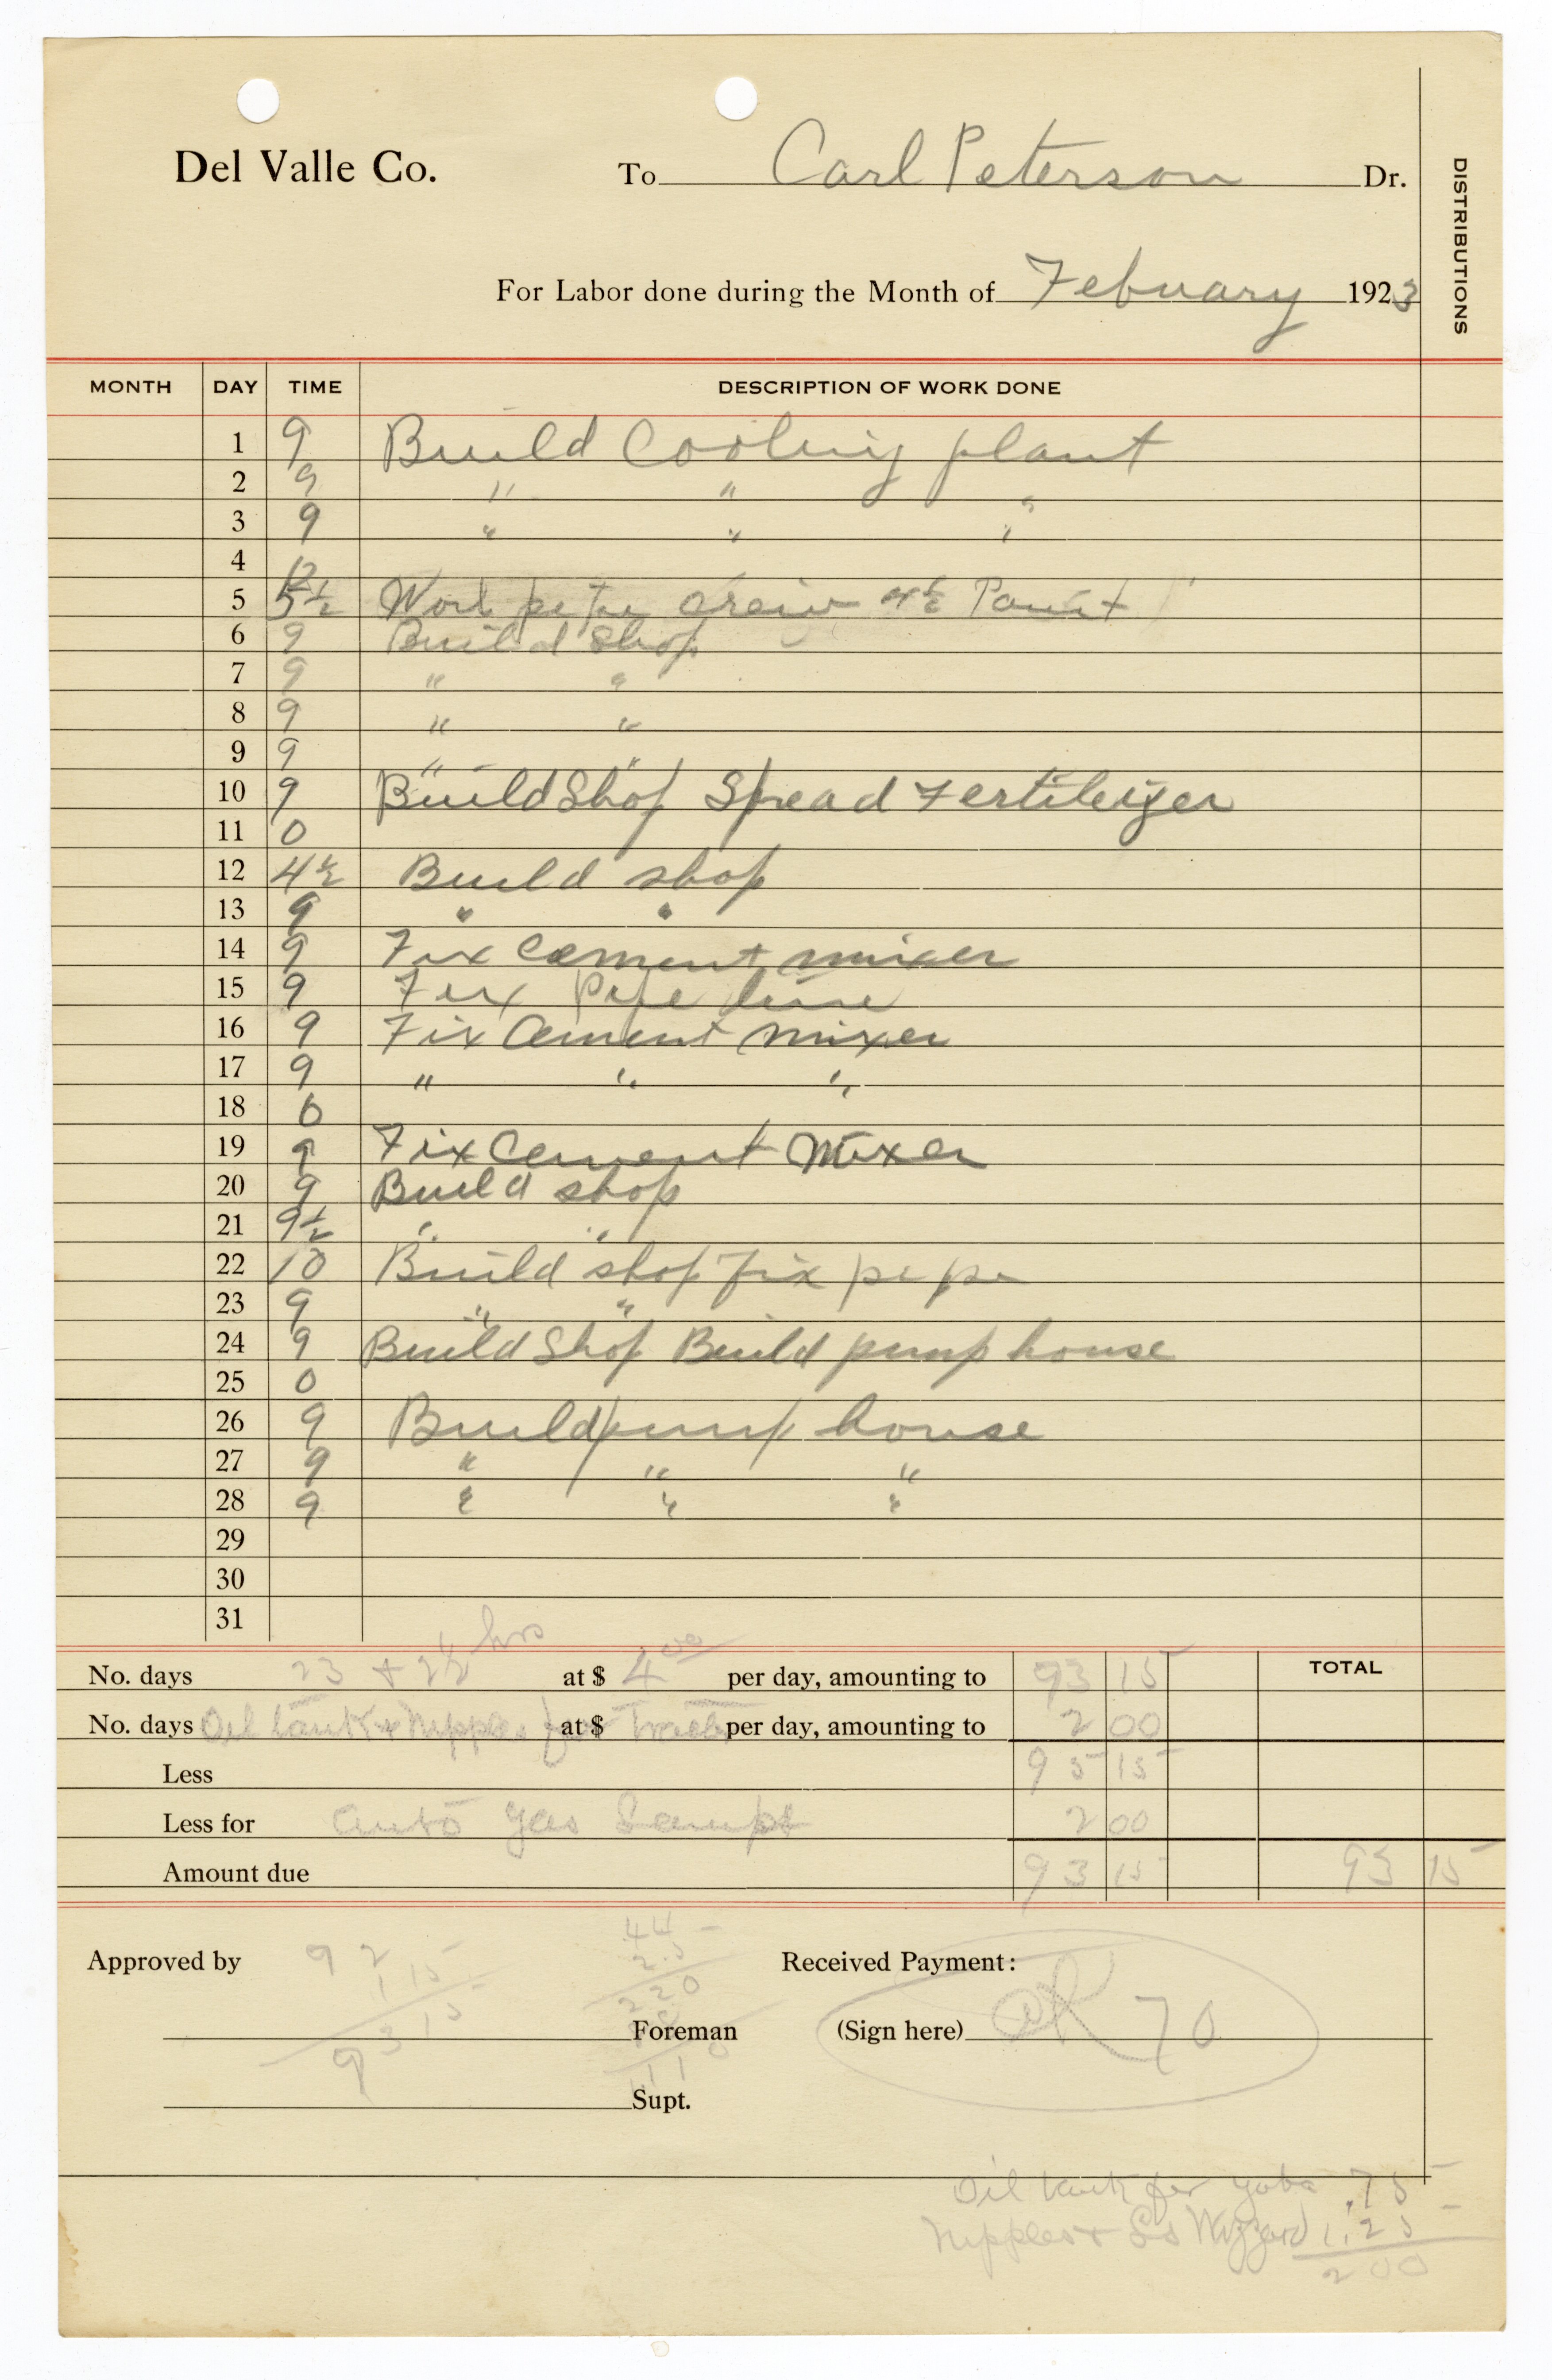 Del Valle Co. To Carl Peterson Dr.
DISTRIBUTIONS
For Labor done during the Month of Febuary 1923
MONTH DAY TIME DESCRIPTION OF WORK DONE
1 9 Build Cooling plant
2 9 " " "
3 9 " " "
4
5 5½ Work
6 9 Build Shop
7 9 " "
8 9 " "
9 9 " "
10 9 Build Shop Spread Fertileizer
11 0
12 4½ Build shop
13 9 " "
14 9 Fix Cement mixer
15 9 Fix Pipe line
16 9 Fix Cement mixer
17 9 " " "
18 0
19 9 Fix Cement Mixer
20 9 Build shop
21 9½ " "
22 10 Build shop fix pipe
23 9 " "
24 9 Build Shop Build pump house
25 0
26 9 Build pump house
27 9 " " "
28 9 " " "
29
30
31
No. days 23 + 2½ hrs at $ 4 00 per day, amounting to 93 15 TOTAL
No. days Oil tank & Nipples for at $ per day, amounting to 2 00
Less 95 15
Less for auto gas 2 00
Amount due 93 15 93 15
Approved by 92 44 Received Payment:
1 15 2.5
93 15 220
Foreman (Sign here) OK 70
1.1 1 0
Supt.
Oil tank for .75
Nipples & 1.25
2 00